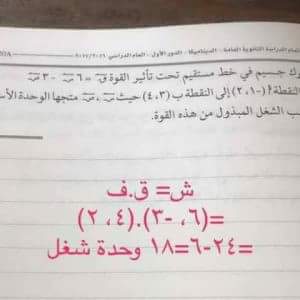 الدراسة الثانوية العامة - الديناميكا - الدور الأول - العام الدراسي ٢٠١٧/٢٠١٦
جسيم في خط مستقيم تحت تأثير القوة ق = ٦ س - ٣ ص
النقطة أ (-١، ٢) إلى النقطة ب (٣، ٤) حيث س، ص متجها الوحدة الأسا
الشغل المبذول من هذه القوة.
ش= ق.ف
=(٦، -٣).(٤، ٢)
=٢٤-٦=١٨ وحدة شغل